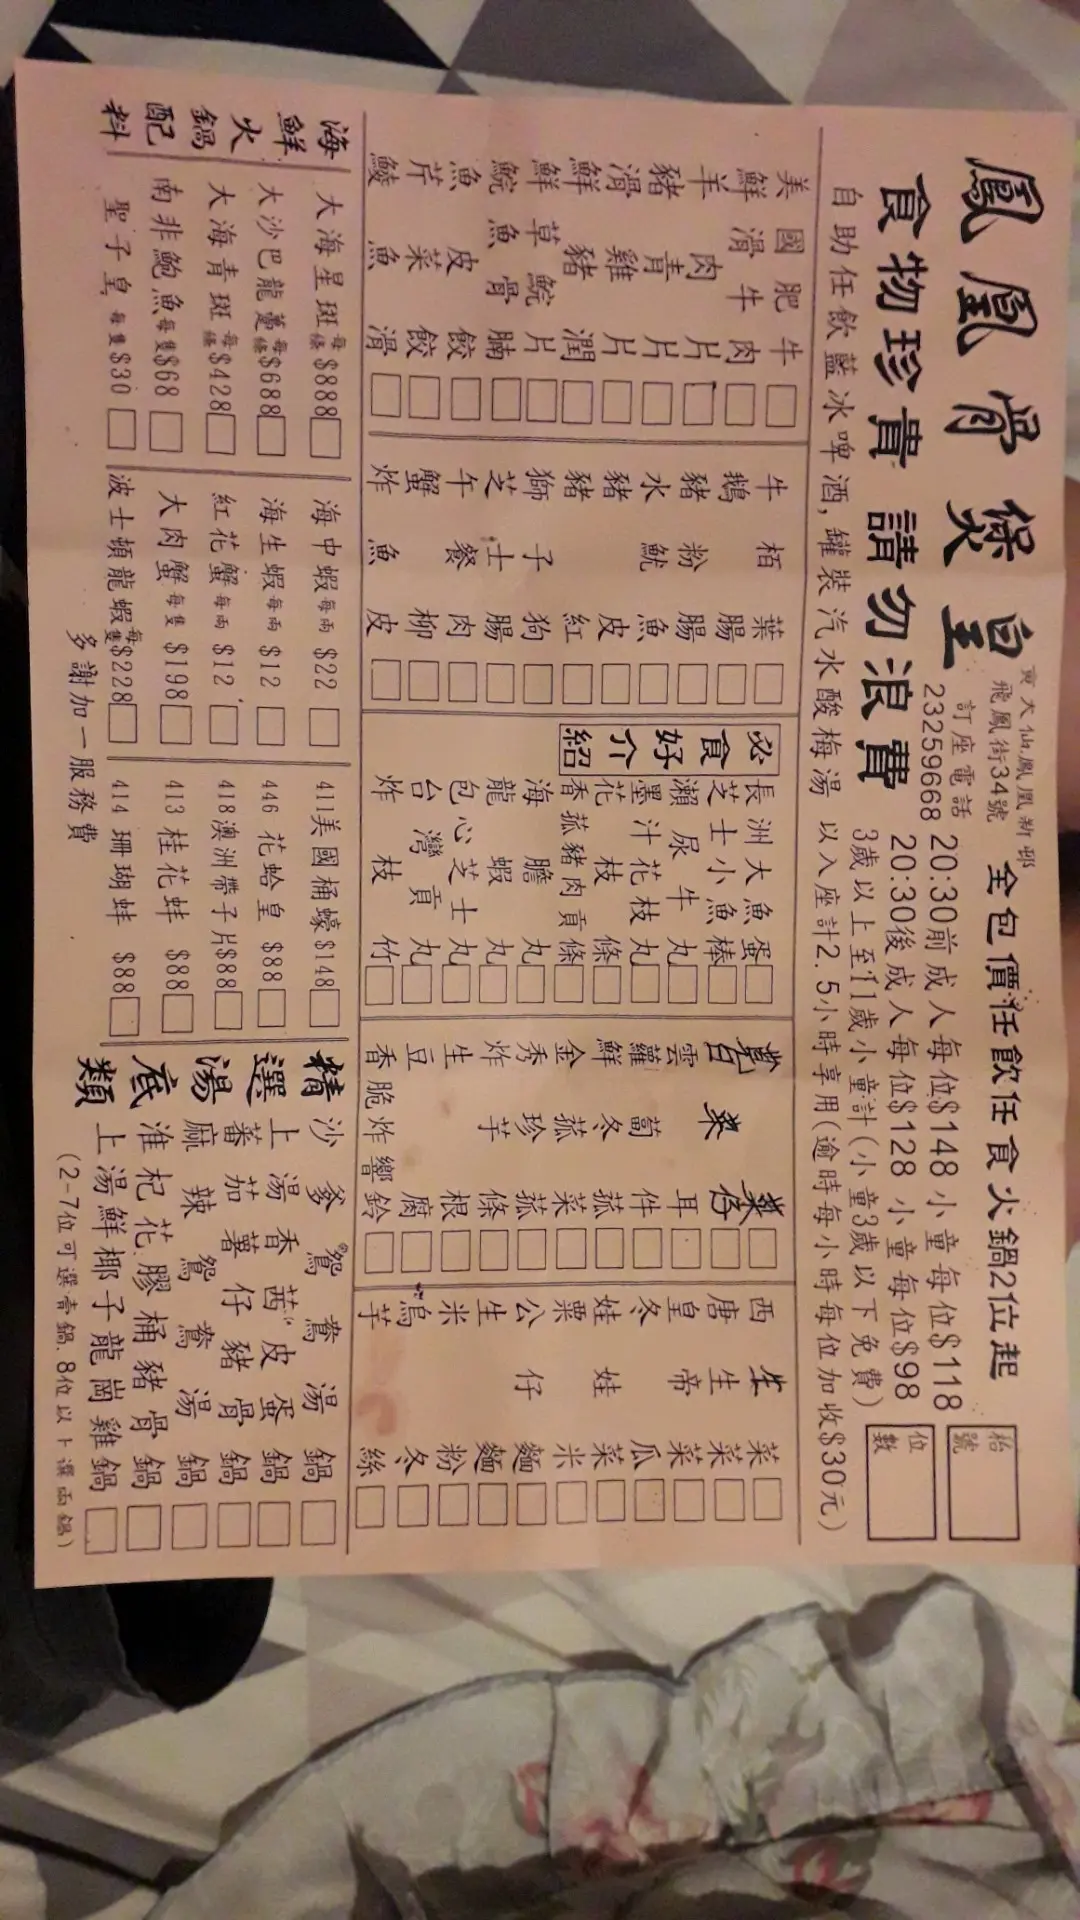 鳳凰骨煲皇
黃大仙鳳凰新邨
飛鳳街34號
訂座電話
23259668
全包價任飲任食火鍋2位起
枱號
食物珍貴 請勿浪費
20:30前成人每位$148小童每位$118
20:30後成人每位$128 小童每位$98
3歲以上至11歲小童計(小童3歲以下免費)
位數
自助任飲藍冰啤酒,罐裝汽水酸梅湯 以入座計2.5小時享用(逾時每小時每位加收$30元)
美國肥牛
鮮滑牛肉
羊肉片
豬青片
滑雞片
鮮豬潤
鮮草鯇片
鯇魚骨腩
魚皮餃
芹菜餃
鯪魚滑
牛栢葉
鵝腸
豬粉腸
水魷魚
豬皮
豬紅
獅子狗
芝士腸
午餐肉
蟹柳
炸魚皮
必食好介紹
長洲大魚蛋
芝士小魚棒
瀨尿牛丸
墨汁花枝丸
花枝條
香菇豬肉貢條
海膽丸
龍蝦丸
包心芝士丸
台灣貢丸
炸枝竹
菜仔
白菜
雲耳
蘿蔔件
鮮冬菇
金菜
秀珍菇
炸芋條
生根
豆腐
香脆炸響鈴
西生菜
唐生菜
皇帝菜
冬瓜
娃娃菜
粟米
公仔麵
生麵
米粉
烏冬
芋絲
海鮮火鍋配料
大海星斑每條$888
大沙巴龍躉每條$688
大海青斑每條$428
南非鮑魚每隻$68
聖子皇每隻$30
海中蝦每兩$22
海生蝦每兩$12
紅花蟹每兩$12
大肉蟹每隻$198
波士頓龍蝦每隻$228
411美國桶蠔$148
446 花蛤皇$88
418澳洲帶子片$88
413 桂花蚌 $88
414 珊瑚蚌 $88
多謝加一服務費
精選湯底類
沙爹鴛鴦湯鍋
上湯香茜皮蛋鍋
蕃茄薯仔豬骨鍋
麻辣鴛鴦湯鍋
淮杞花膠桶豬骨鍋
上湯鮮椰子龍崗雞鍋
(2-7位可選壹鍋.8位以上選兩鍋)